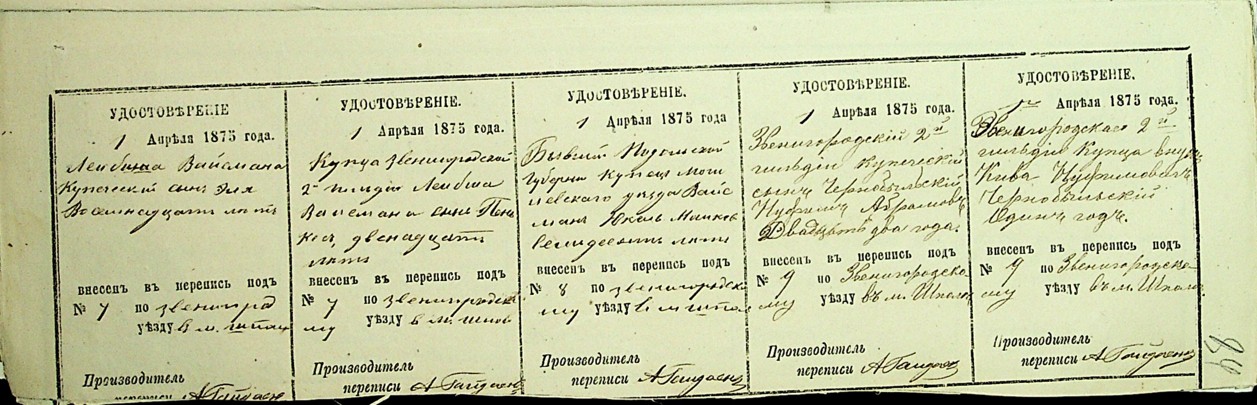 УДОСТОВѢРЕНІЕ
1 Апрѣля 1875 года.
Лейбиша Вайсмана
Купеческій сынъ Эля
Восемнадцати лѣтъ
внесенъ въ перепись подъ
№ 7 по звенигород
уѣзду в м.
Производитель
переписи А Гайдаен
УДОСТОВѢРЕНІЕ.
1 Апрѣля 1875 года.
Купца звенигородской
2й гильдіи Лейбиша
Вайсмана сынъ
двенадцати
лѣтъ
внесенъ въ перепись подъ
№ 7 по звенигородско
му уѣзду в м.
Производитель
переписи А Гайдаен
УДОСТОВѢРЕНІЕ.
1 Апрѣля 1875 года
Бывшій Подольской
Губерніи Купецъ Моги
левскаго уѣзда Вайс
манъ
Семидесяти лѣтъ
внесенъ въ перепись подъ
№ 8 по звенигородско
му уѣзду в м шпол
Производитель
переписи А Гайдаен
УДОСТОВѢРЕНІЕ.
1 Апрѣля 1875 года.
Звенигородскій 2й
гильдіи Купеческій
сынъ Чернобыльскій
Абрамовъ
Двадцать два года.
внесенъ въ перепись подъ
№ 9 по Звенигородско
му уѣзду въ м. Шпола
Производитель
переписи А Гайдаен
УДОСТОВѢРЕНІЕ.
1го Апрѣля 1875 года.
Звенигородскаго 2й
гильдіи Купца внукъ
Кива
Чернобыльскій
Одинъ годъ.
внесенъ въ перепись подъ
№ 9 по Звенигородско
му уѣзду въ м. Шпола
Производитель
переписи А Гайдаен